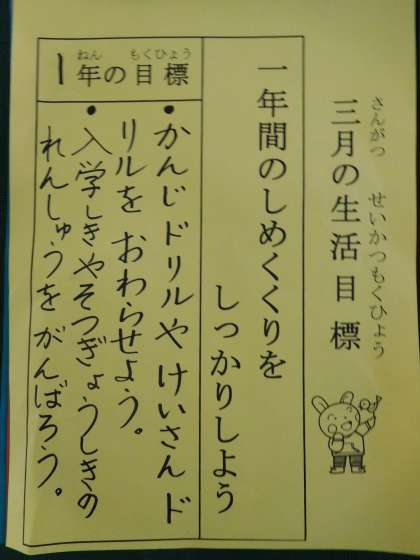 さんがつ せいかつもくひょう
三月の生活目標
一年間のしめくくりを
しっかりしよう
ねん もくひょう
1年の目標
・かんじドリルやけいさんド
リルをおわらせよう。
・入学しきやそつぎょうしきの
れんしゅうをがんばろう。